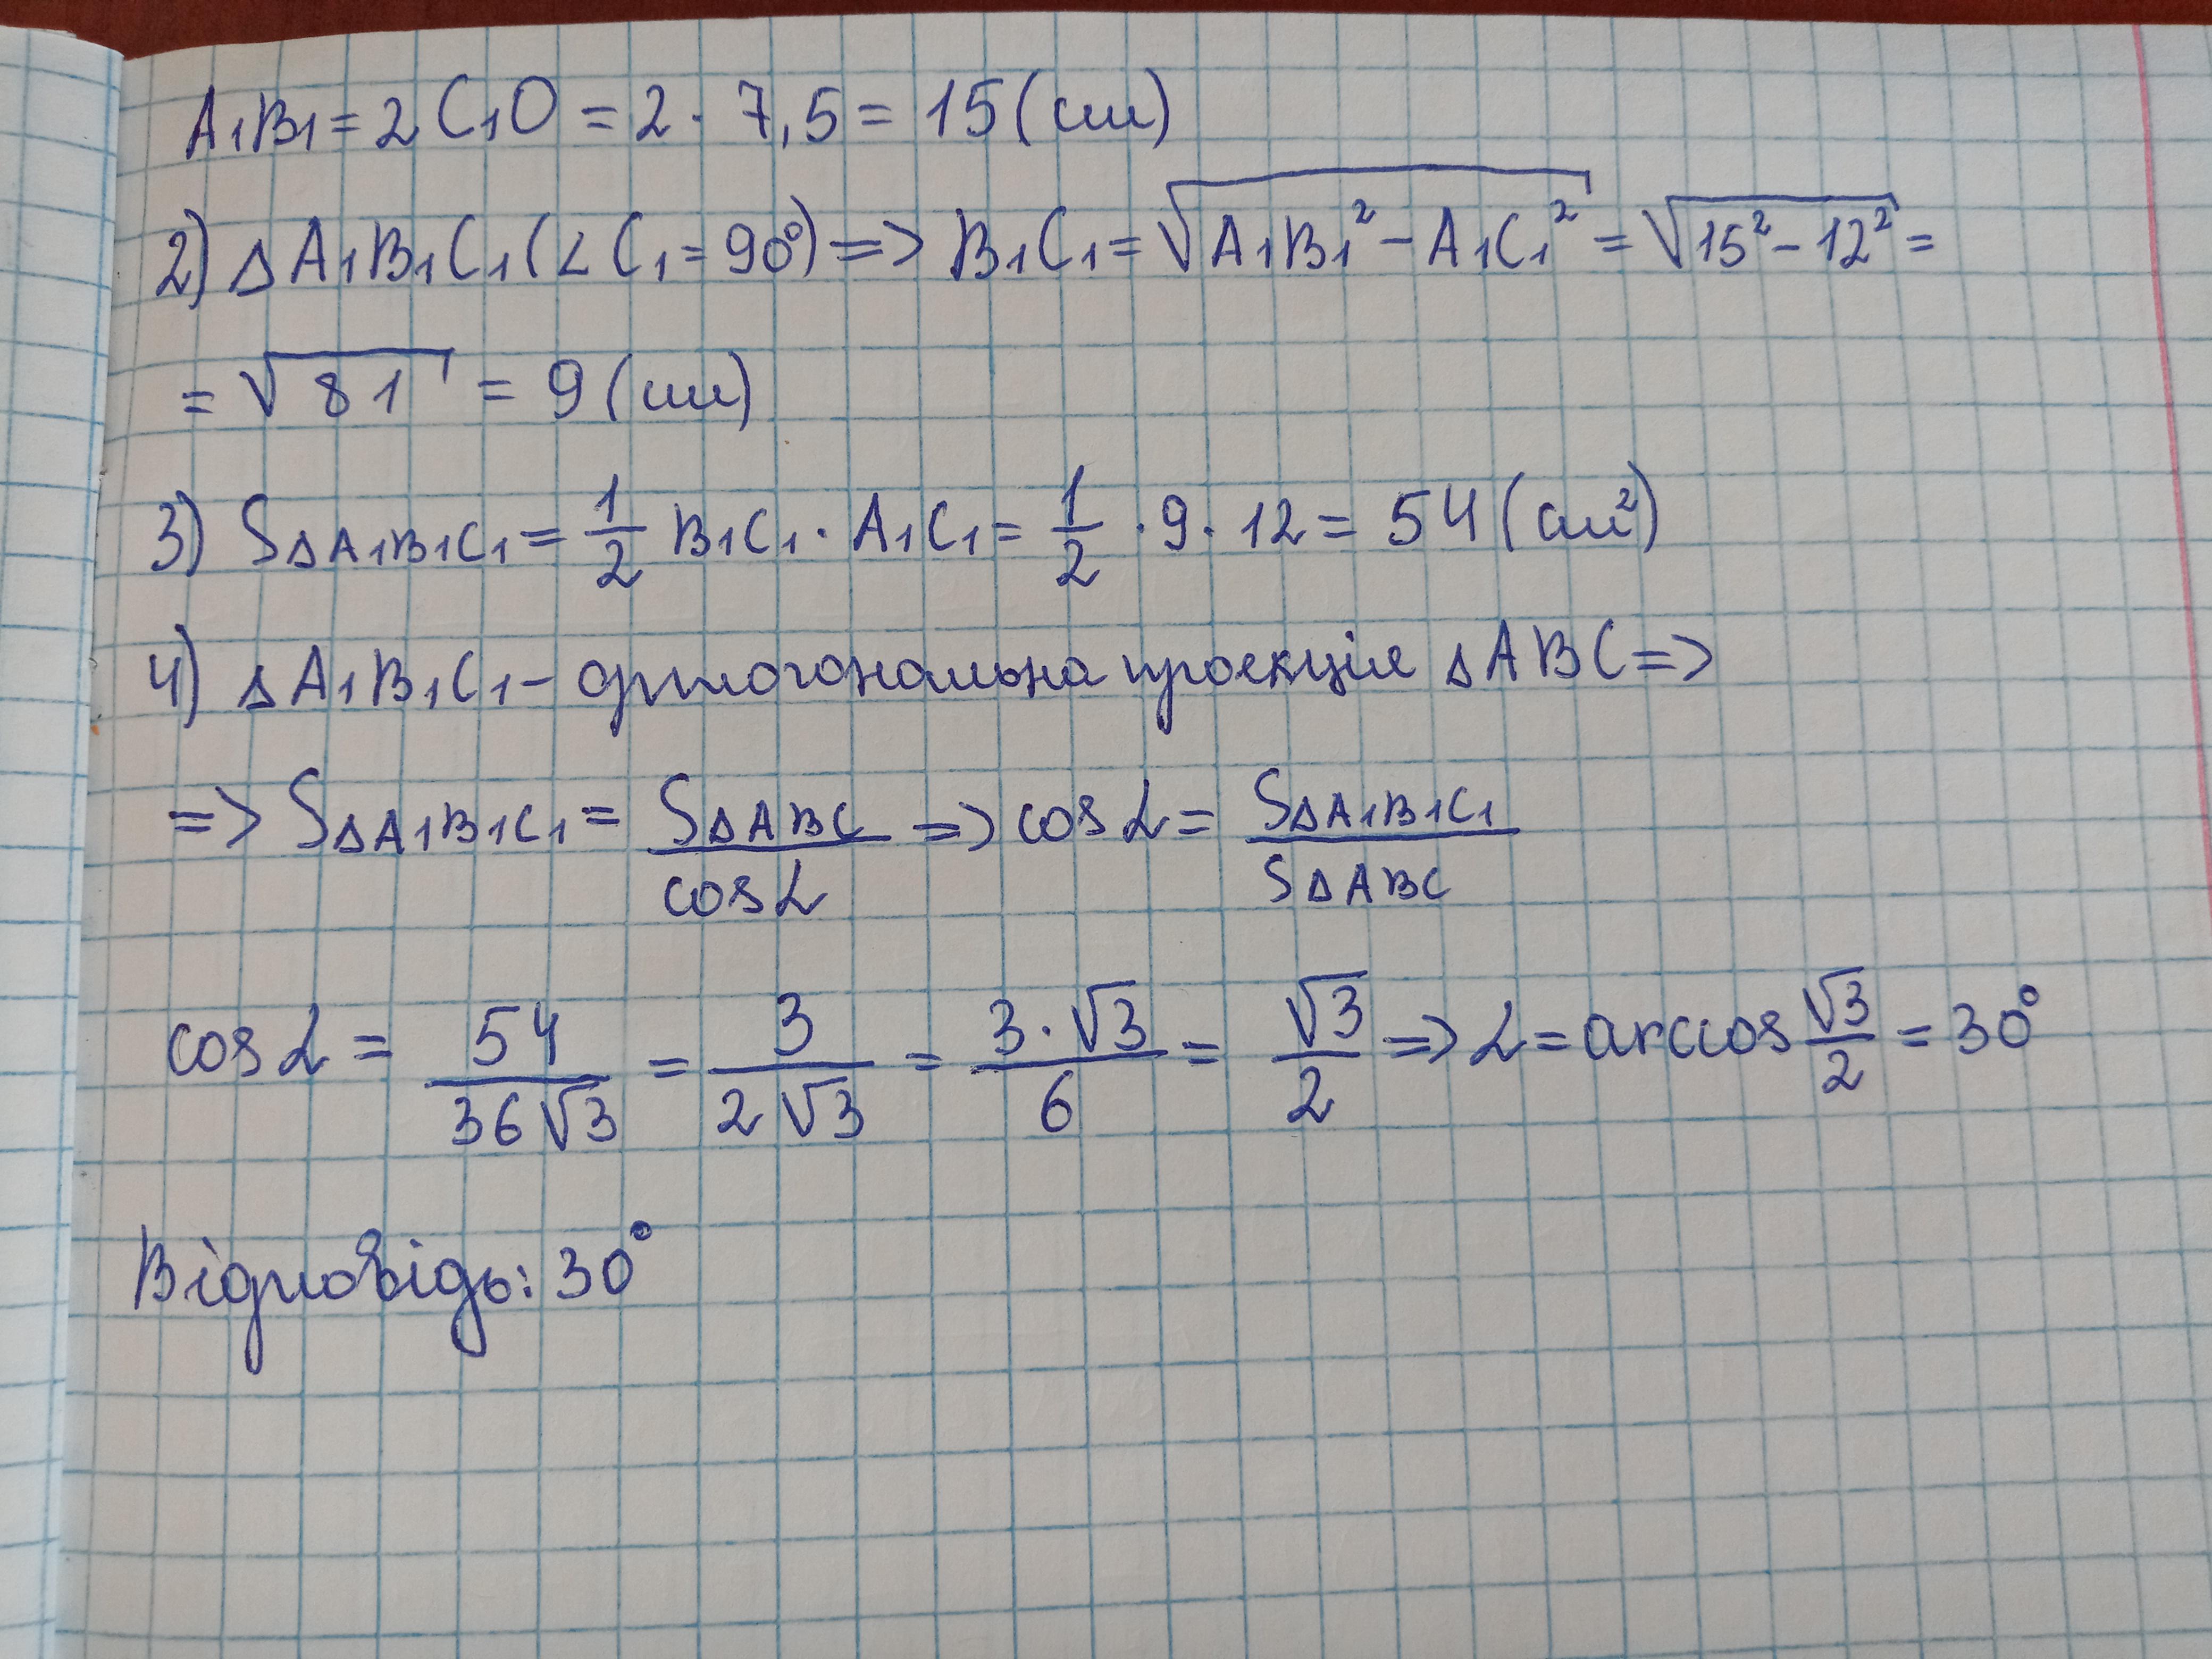 A₁B₁ = 2C₁O = 2 · 7,5 = 15 (см)
2) △A₁B₁C₁ (∠C₁ = 90°) => B₁C₁ = √(A₁B₁² - A₁C₁²) = √(15² - 12²) =
= √81 = 9 (см)
3) S△A₁B₁C₁ = 1/2 B₁C₁ · A₁C₁ = 1/2 · 9 · 12 = 54 (см²)
4) △A₁B₁C₁ - ортогональна проекція △ABC =>
=> S△A₁B₁C₁ = S△ABC/cos α => cos α = S△A₁B₁C₁/S△ABC
cos α = 54/(36√3) = 3/(2√3) = (3·√3)/6 = √3/2 => α = arccos √3/2 = 30°
Відповідь: 30°